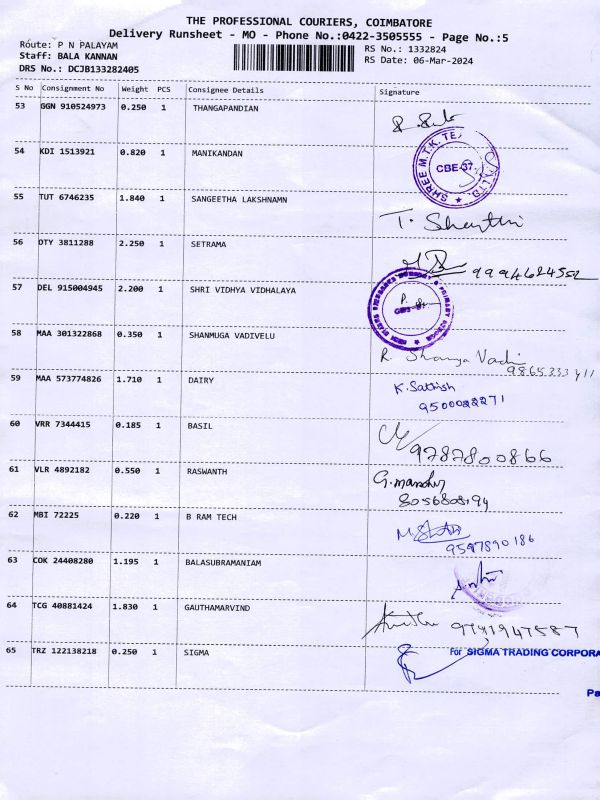 THE PROFESSIONAL COURIERS, COIMBATORE
Delivery Runsheet - MO - Phone No.:0422-3505555 - Page No.:5
Route: P N PALAYAM
Staff: BALA KANNAN
DRS No.: DCJB133282405
RS No.: 1332824
RS Date: 06-Mar-2024
S No Consignment No Weight PCS Consignee Details Signature
53 GGN 910524973 0.250 1 THANGAPANDIAN
54 KDI 1513921 0.820 1 MANIKANDAN
SHREE M.T.K. CBE-37.
55 TUT 6746235 1.840 1 SANGEETHA LAKSHNAMN T. Shanthi
56 OTY 3811288 2.250 1 SETRAMA
57 DEL 915004945 2.200 1 SHRI VIDHYA VIDHALAYA
58 MAA 301322868 0.350 1 SHANMUGA VADIVELU
59 MAA 573774826 1.710 1 DAIRY K. Sathish
9500022271
60 VRR 7344415 0.185 1 BASIL
9787800866
61 VLR 4892182 0.550 1 RASWANTH
8056808194
62 MBI 72225 0.220 1 B RAM TECH
9597890186
63 COK 24408280 1.195 1 BALASUBRAMANIAM
64 TCG 40881424 1.830 1 GAUTHAMARVIND
65 TRZ 122138218 0.250 1 SIGMA For SIGMA TRADING CORPORA
Pa